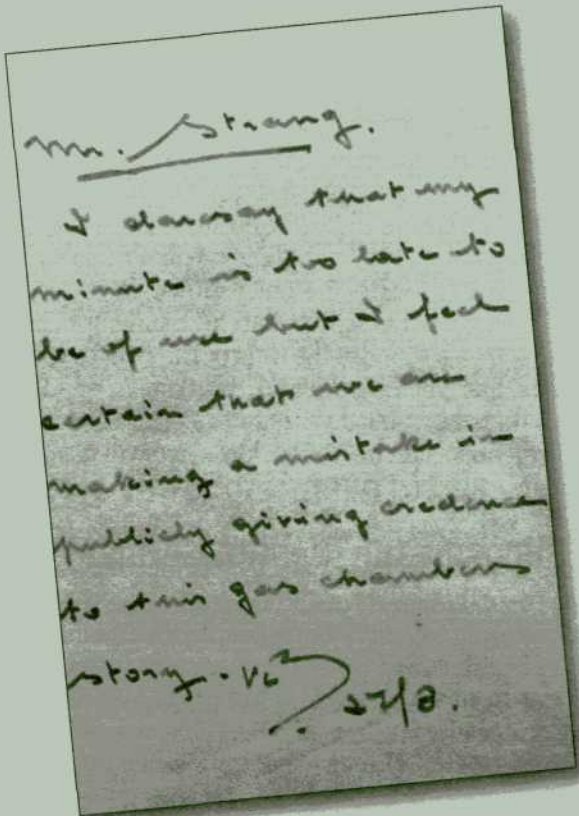 Mr. Strang.
I daresay that my
minute is too late to
be of use but I feel
certain that we are
making a mistake in
publicly giving credence
to this gas chambers
story. 27/8.